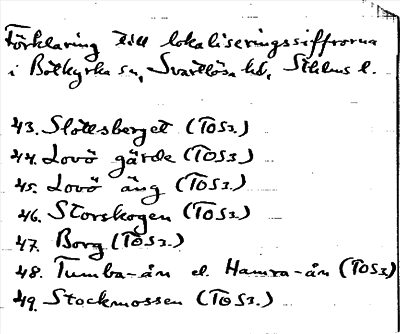 Förklaring till lokaliseringssiffrorna
i Botkyrka sn, Svartlösa hd, Sthlms l.
43. Slottsberget (TOS3.)
44. Lovö gärde (TOS3.)
45. Lovö äng (TOS3.)
46. Storskogen (TOS3.)
47. Borg (TOS3.)
48. Tumba-ån el. Hamra-ån (TOS3)
49. Stockmossen (TOS3.)